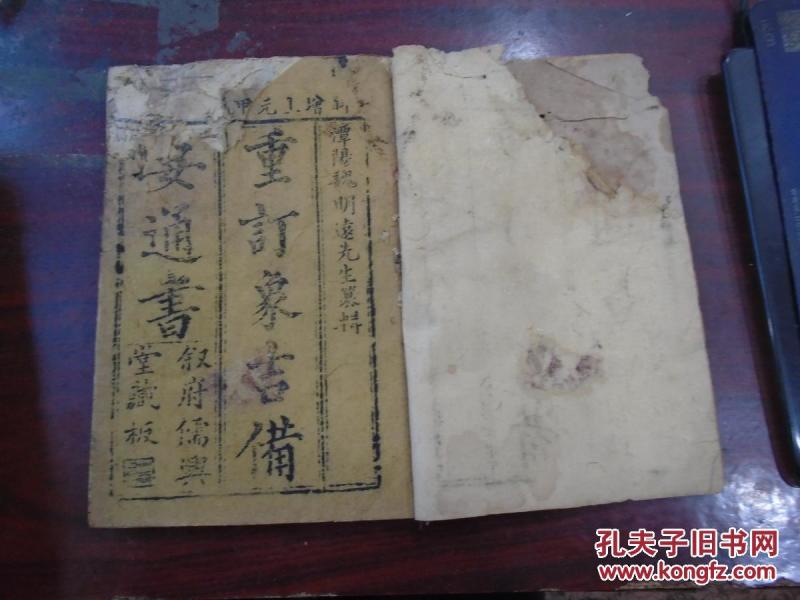 新增上元甲
潭陽魏明遠先生纂輯
重訂象吉備
要通書
叙府儒興
堂藏板
孔夫子旧书网
www.kongfz.com